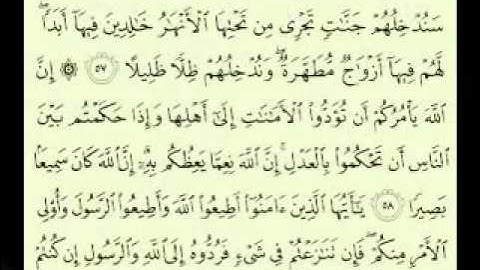 سَنُدْخِلُهُمْ جَنَّٰتٍ تَجْرِى مِن تَحْتِهَا ٱلْأَنْهَٰرُ خَٰلِدِينَ فِيهَآ أَبَدًا ۖ
لَّهُمْ فِيهَآ أَزْوَٰجٌ مُّطَهَّرَةٌ ۖ وَنُدْخِلُهُمْ ظِلًّا ظَلِيلًا ٥٧ ۞ إِنَّ
ٱللَّهَ يَأْمُرُكُمْ أَن تُؤَدُّوا۟ ٱلْأَمَٰنَٰتِ إِلَىٰٓ أَهْلِهَا وَإِذَا حَكَمْتُم بَيْنَ
ٱلنَّاسِ أَن تَحْكُمُوا۟ بِٱلْعَدْلِ ۚ إِنَّ ٱللَّهَ نِعِمَّا يَعِظُكُم بِهِۦٓ ۗ إِنَّ ٱللَّهَ كَانَ سَمِيعًۢا
بَصِيرًا ٥٨ يَٰٓأَيُّهَا ٱلَّذِينَ ءَامَنُوٓا۟ أَطِيعُوا۟ ٱللَّهَ وَأَطِيعُوا۟ ٱلرَّسُولَ وَأُو۟لِى
ٱلْأَمْرِ مِنكُمْ ۖ فَإِن تَنَٰزَعْتُمْ فِى شَىْءٍ فَرُدُّوهُ إِلَى ٱللَّهِ وَٱلرَّسُولِ إِن كُنتُمْ